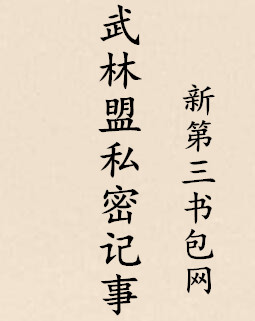 武林盟私密记事
新第三书包网